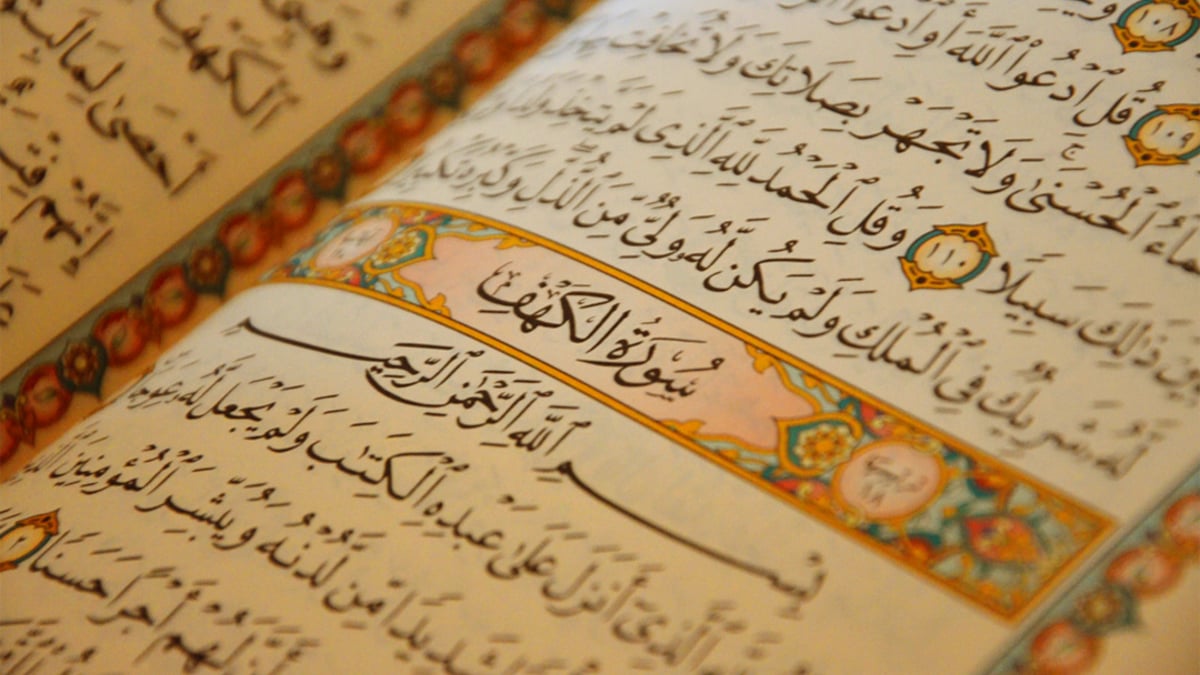 ١٠٨
١٠٩ قُلِ ٱدْعُوا۟ ٱللَّهَ أَوِ ٱدْعُوا۟
ٱلْحُسْنَىٰ وَلَا تَجْهَرْ بِصَلَاتِكَ وَلَا تُخَافِتْ
ذَٰلِكَ سَبِيلًا ١١٠ وَقُلِ ٱلْحَمْدُ لِلَّهِ ٱلَّذِى لَمْ يَتَّخِذْ وَلَدًا
لَّهُۥ شَرِيكٌ فِى ٱلْمُلْكِ وَلَمْ يَكُن لَّهُۥ وَلِىٌّ مِّنَ ٱلذُّلِّ وَكَبِّرْهُ تَكْبِيرًا
سُورَةُ الْكَهْفِ
بِسْمِ ٱللَّهِ ٱلرَّحْمَٰنِ ٱلرَّحِيمِ
ٱلَّذِىٓ أَنزَلَ عَلَىٰ عَبْدِهِ ٱلْكِتَٰبَ وَلَمْ يَجْعَل لَّهُۥ عِوَجَا
شَدِيدًا مِّن لَّدُنْهُ وَيُبَشِّرَ ٱلْمُؤْمِنِينَ
لَهُمْ أَجْرًا حَسَنًا ٢
ٱلْكَهْفِ
أَحْصَىٰ لِمَا